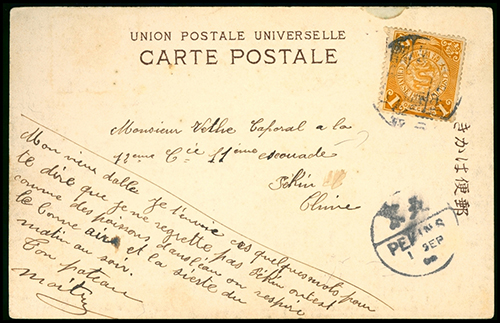 UNION POSTALE UNIVERSELLE
CARTE POSTALE
1
Monsieur Vethe Caporal a la
11eme Cie 11eme escouade
Pékin
Chine
郵便はかき
PEKING
1 SEP
Mon vieux je t'envoie ces quelques mots pour
te dire que je ne regrette pas Pékin on est
comme des poissons dans l'eau on respire
le bonne aire et la sieste du
matin au soir.
Ton poteau